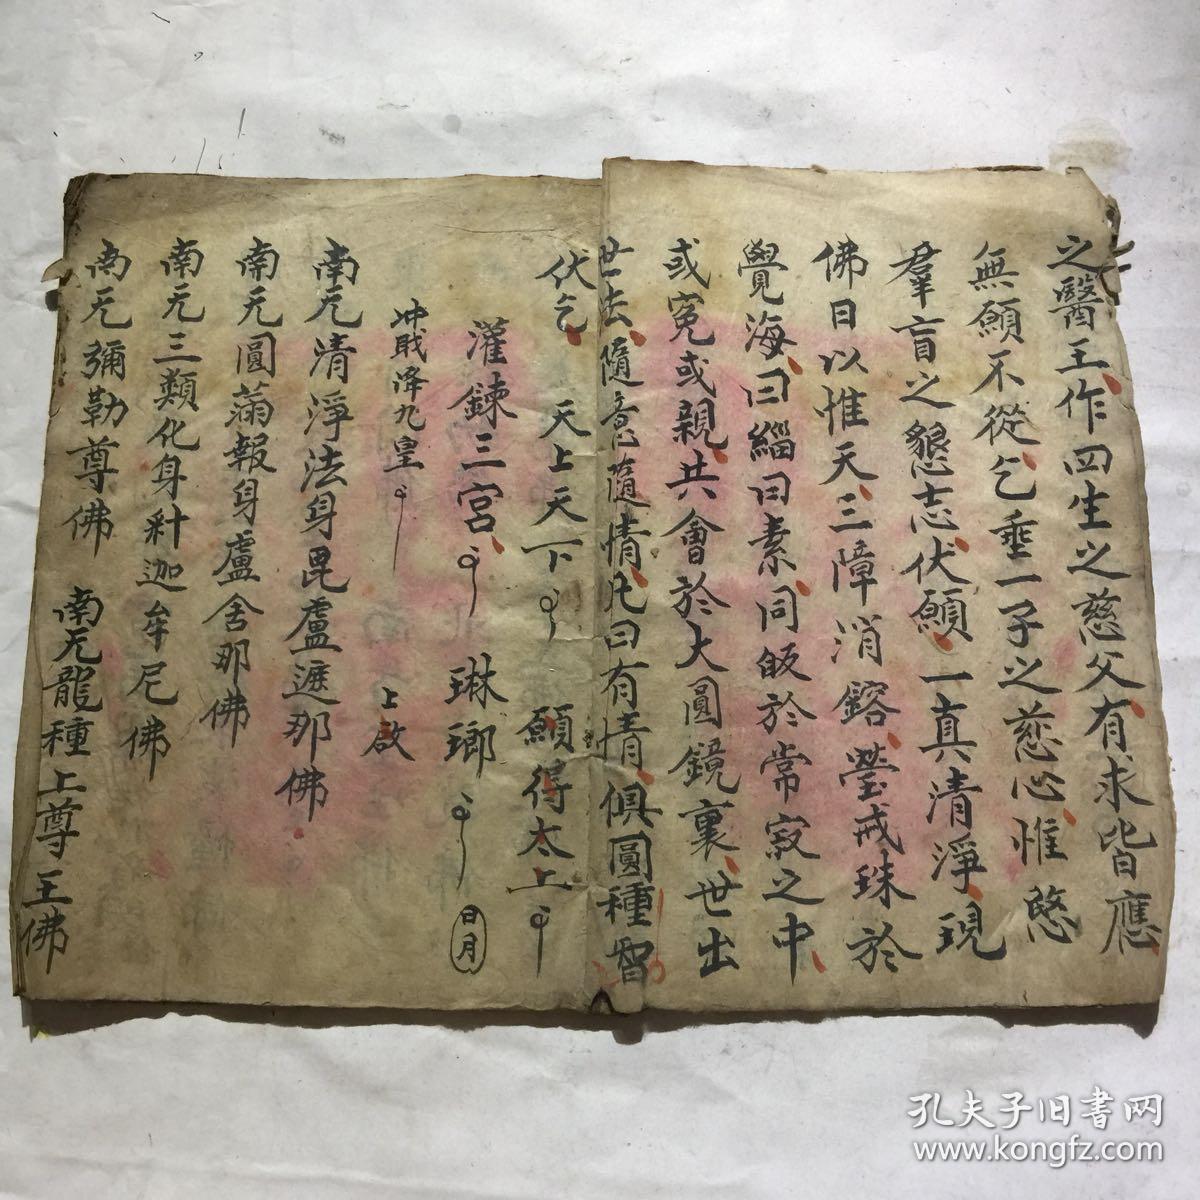 之醫王作四生之慈父有求皆應
無願不從乞垂一子之慈心惟愍
羣盲之懇志伏願一真清淨現
佛日以惟天三障消鎔瑩戒珠於
覺海曰緇曰素同皈於常寂之中
或寃或親共會於大圓鏡裏世出
世法隨意隨情凡曰有情俱圓種智
伏乞 天上天下 願得太上
灌鍊三宮 琳瑯 日月
冲戝降九皇 上啟
南无清淨法身毘盧遮那佛
南无圓滿報身盧舍那佛
南无三類化身釈迦牟尼佛
南无彌勒尊佛 南无龍種上尊王佛
孔夫子旧书网
www.kongfz.com